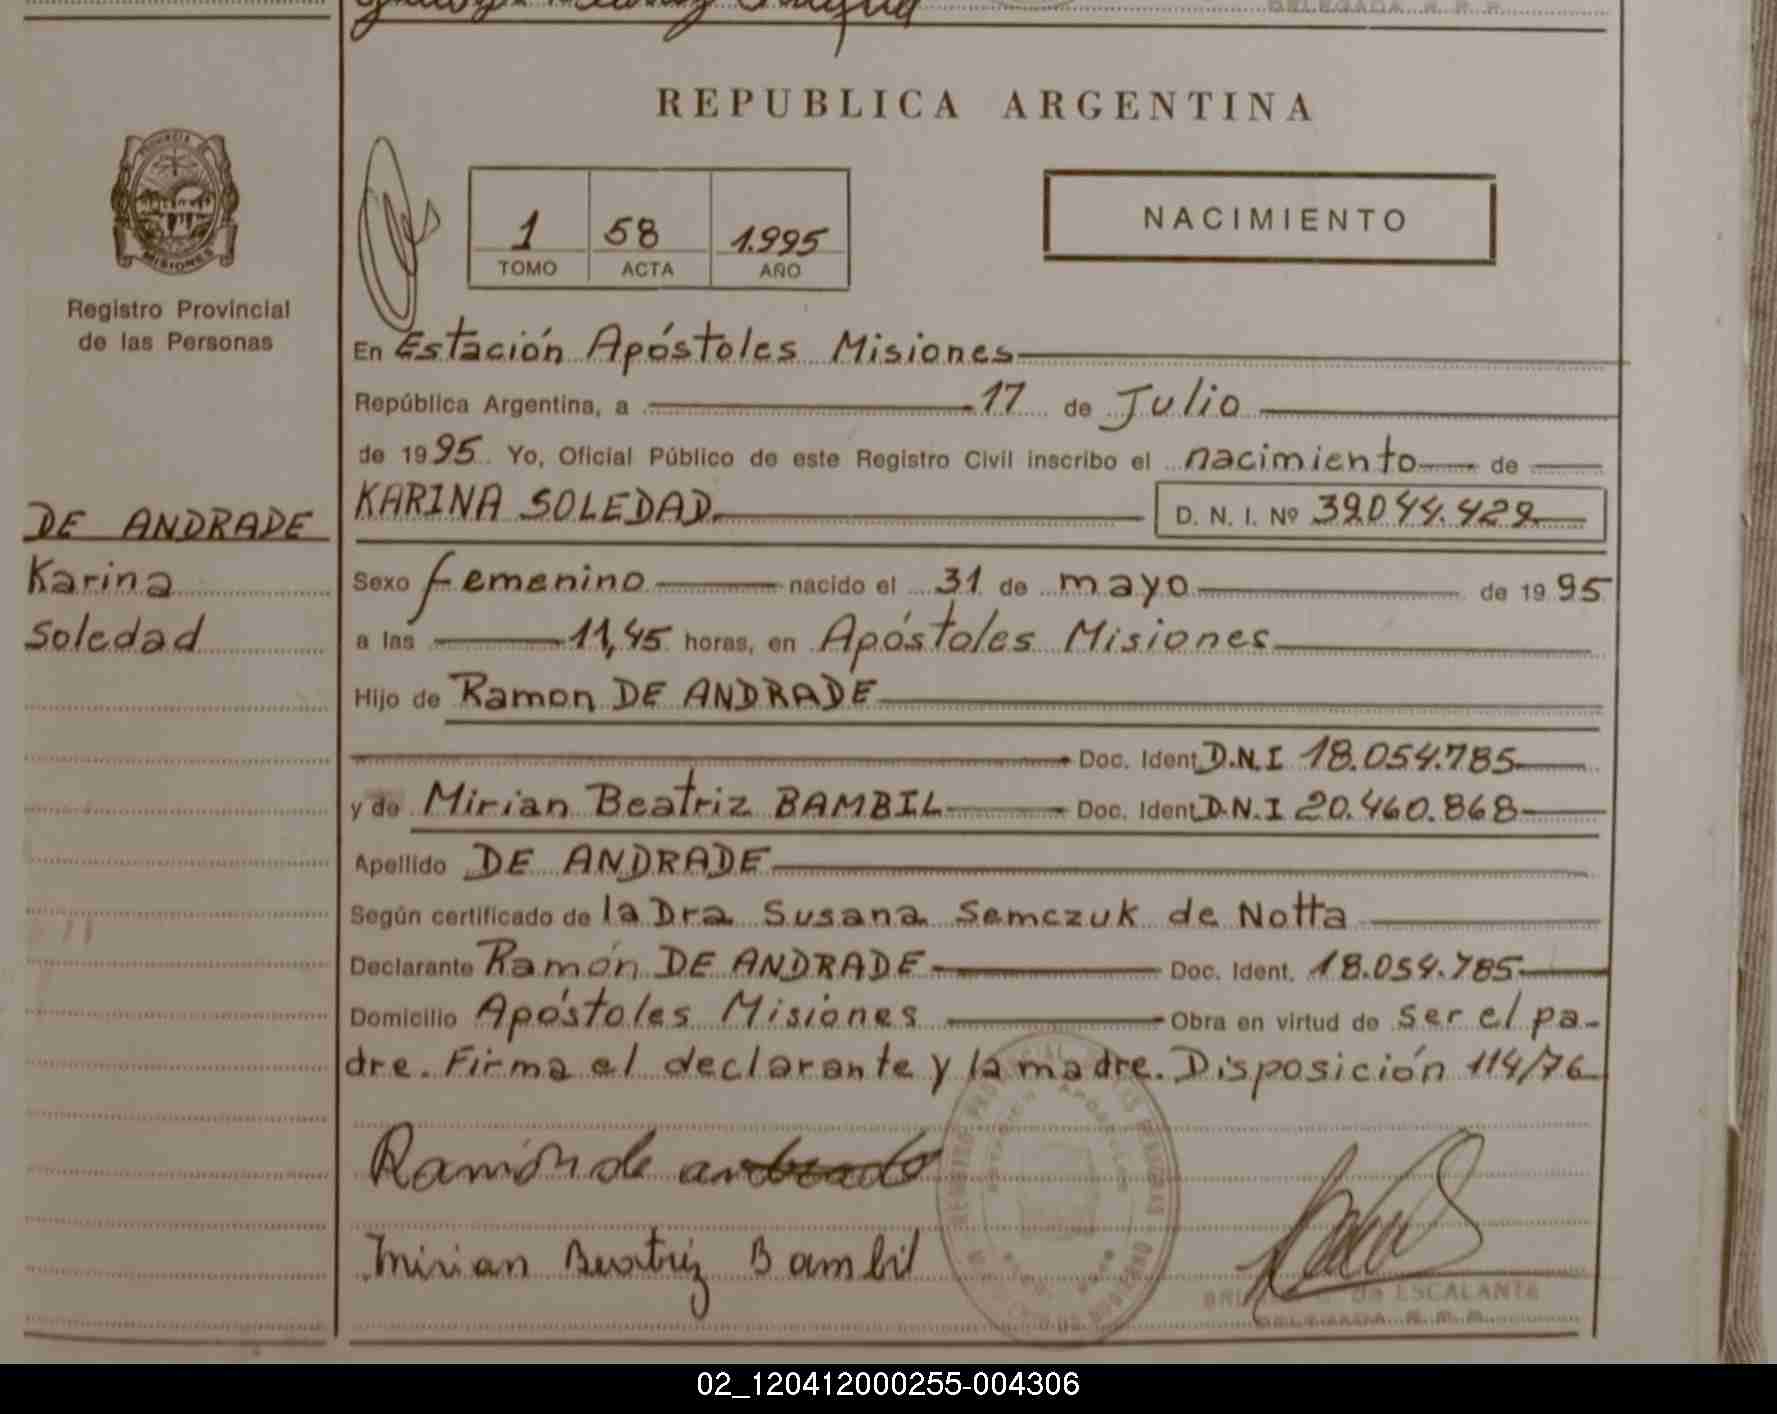 DELEGADA R. P. P.
REPUBLICA ARGENTINA
PROVINCIA
MISIONES
Registro Provincial
de las Personas
1 58 1.995
TOMO ACTA AÑO
NACIMIENTO
En Estación Apóstoles Misiones
República Argentina, a 17 de Julio
de 1995 Yo, Oficial Público de este Registro Civil inscribo el nacimiento de
KARINA SOLEDAD D. N. I. Nº 39.044.429
DE ANDRADE
Karina
Soledad
Sexo femenino nacido el 31 de mayo de 1995
a las 11,45 horas, en Apóstoles Misiones
Hijo de Ramon DE ANDRADE
Doc. Ident D.N.I 18.054.785
y de Mirian Beatriz BAMBIL Doc. Ident D.N.I 20.460.868
Apellido DE ANDRADE
Según certificado de la Dra Susana Semczuk de Notta
Declarante Ramón DE ANDRADE Doc. Ident. 18.054.785
Domicilio Apóstoles Misiones Obra en virtud de ser el pa-
dre. Firma el declarante y la madre. Disposición 114/76
Ramón de andrade
Mirian Beatriz Bambil
DE ESCALANTE
DELEGADA R. P. P.
02_120412000255-004306